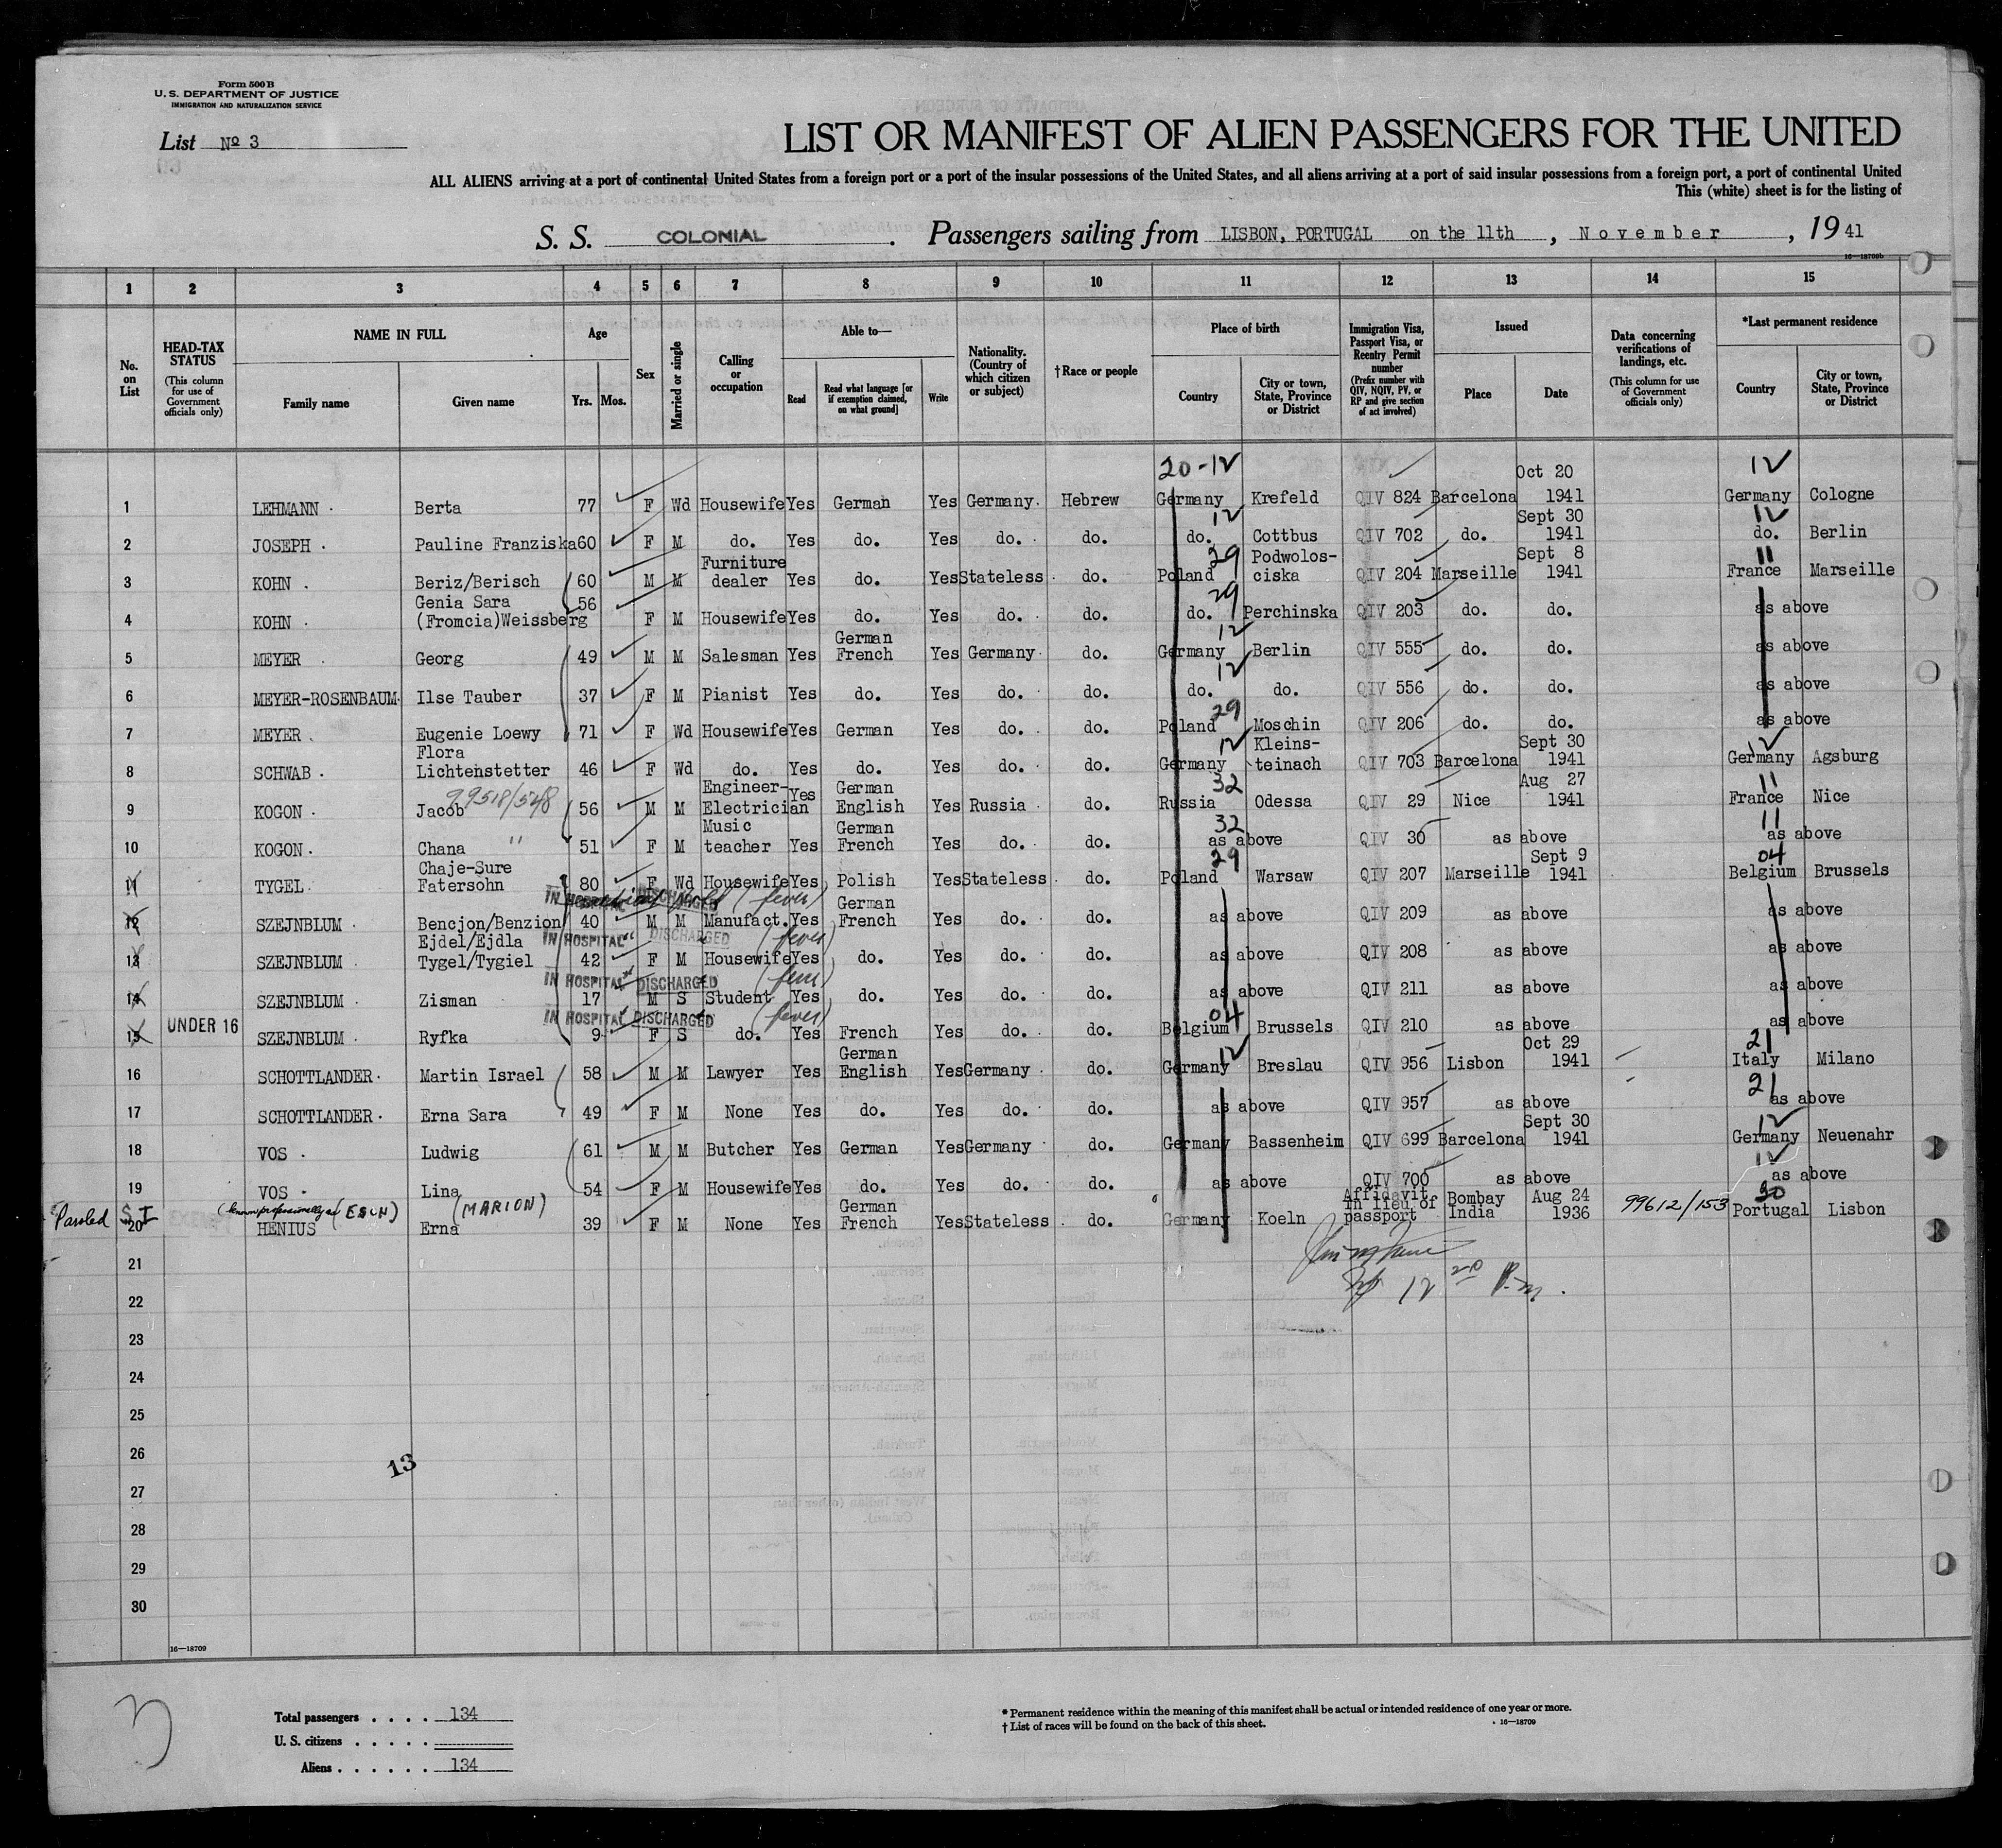 Form 500 B
U. S. DEPARTMENT OF JUSTICE
IMMIGRATION AND NATURALIZATION SERVICE
List No 3
LIST OR MANIFEST OF ALIEN PASSENGERS FOR THE UNITED
ALL ALIENS arriving at a port of continental United States from a foreign port or a port of the insular possessions of the United States, and all aliens arriving at a port of said insular possessions from a foreign port, a port of continental United
This (white) sheet is for the listing of
S. S. COLONIAL . Passengers sailing from LISBON, PORTUGAL on the 11th , November , 19 41
16—18709b
1 2 3 4 5 6 7 8 9 10 11 12 13 14 15
No. on List
HEAD-TAX STATUS (This column for use of Government officials only)
NAME IN FULL
Family name Given name
Age
Yrs. Mos.
Sex
Married or single
Calling or occupation
Able to—
Read
Read what language [or if exemption claimed, on what ground]
Write
Nationality. (Country of which citizen or subject)
†Race or people
Place of birth
Country
City or town, State, Province or District
Immigration Visa, Passport Visa, or Reentry Permit number (Prefix number with QIV, NQIV, PV, or RP and give section of act involved)
Issued
Place Date
Data concerning verifications of landings, etc. (This column for use of Government officials only)
*Last permanent residence
Country
City or town, State, Province or District
20-12 12
1 LEHMANN Berta 77 F Wd Housewife Yes German Yes Germany Hebrew Germany Krefeld QIV 824 Barcelona Oct 20 1941 Germany Cologne
12 12
2 JOSEPH Pauline Franziska 60 F M do. Yes do. Yes do. do. do. Cottbus QIV 702 do. Sept 30 1941 do. Berlin
29 11
3 KOHN Beriz/Berisch 60 M M Furniture dealer Yes do. Yes Stateless do. Poland Podwolos-ciska QIV 204 Marseille Sept 8 1941 France Marseille
29
4 KOHN Genia Sara (Fromcia)Weissberg 56 F M Housewife Yes do. Yes do. do. do. Perchinska QIV 203 do. do. as above
12
5 MEYER Georg 49 M M Salesman Yes German French Yes Germany do. Germany Berlin QIV 555 do. do. as above
12
6 MEYER-ROSENBAUM Ilse Tauber 37 F M Pianist Yes do. Yes do. do. do. do. QIV 556 do. do. as above
29
7 MEYER Eugenie Loewy 71 F Wd Housewife Yes German Yes do. do. Poland Moschin QIV 206 do. do. as above
12 12
8 SCHWAB Flora Lichtenstetter 46 F Wd do. Yes do. Yes do. do. Germany Kleins-teinach QIV 703 Barcelona Sept 30 1941 Germany Agsburg
99518/548 32 11
9 KOGON Jacob 56 M M Engineer-Electrician Yes German English Yes Russia do. Russia Odessa QIV 29 Nice Aug 27 1941 France Nice
32 11
10 KOGON Chana " 51 F M Music teacher Yes German French Yes do. do. as above QIV 30 as above as above
29 04
11 TYGEL Chaje-Sure Fatersohn 80 F Wd Housewife Yes Polish Yes Stateless do. Poland Warsaw QIV 207 Marseille Sept 9 1941 Belgium Brussels
IN HOSPITAL DISCHARGED (fever)
12 SZEJNBLUM Bencjon/Benzion 40 M M Manufact. Yes German French Yes do. do. as above QIV 209 as above as above
IN HOSPITAL " DISCHARGED (fever)
13 SZEJNBLUM Ejdel/Ejdla Tygel/Tygiel 42 F M Housewife Yes do. Yes do. do. as above QIV 208 as above as above
IN HOSPITAL " DISCHARGED (fever)
14 SZEJNBLUM Zisman 17 M S Student Yes do. Yes do. do. as above QIV 211 as above as above
IN HOSPITAL DISCHARGED (fever) 04
15 UNDER 16 SZEJNBLUM Ryfka 9 F S do. Yes French Yes do. do. Belgium Brussels QIV 210 as above as above
12 21
16 SCHOTTLANDER Martin Israel 58 M M Lawyer Yes German English Yes Germany do. Germany Breslau QIV 956 Lisbon Oct 29 1941 Italy Milano
21
17 SCHOTTLANDER Erna Sara 49 F M None Yes do. Yes do. do. as above QIV 957 as above as above
12
18 VOS Ludwig 61 M M Butcher Yes German Yes Germany do. Germany Bassenheim QIV 699 Barcelona Sept 30 1941 Germany Neuenahr
12
19 VOS Lina 54 F M Housewife Yes do. Yes do. do. as above QIV 700 as above as above
Paroled SI (known professionally as (ESCH) (MARION) 30
20 HENIUS Erna 39 F M None Yes German French Yes Stateless do. Germany Koeln Affidavit in lieu of passport Bombay India Aug 24 1936 99612/153 Portugal Lisbon
21
12 P.m.
22
23
24
25
26
13
27
28
29
30
16—18709
3
Total passengers . . . . 134
U. S. citizens . . . . .
Aliens . . . . . . 134
* Permanent residence within the meaning of this manifest shall be actual or intended residence of one year or more.
† List of races will be found on the back of this sheet.
16—18709